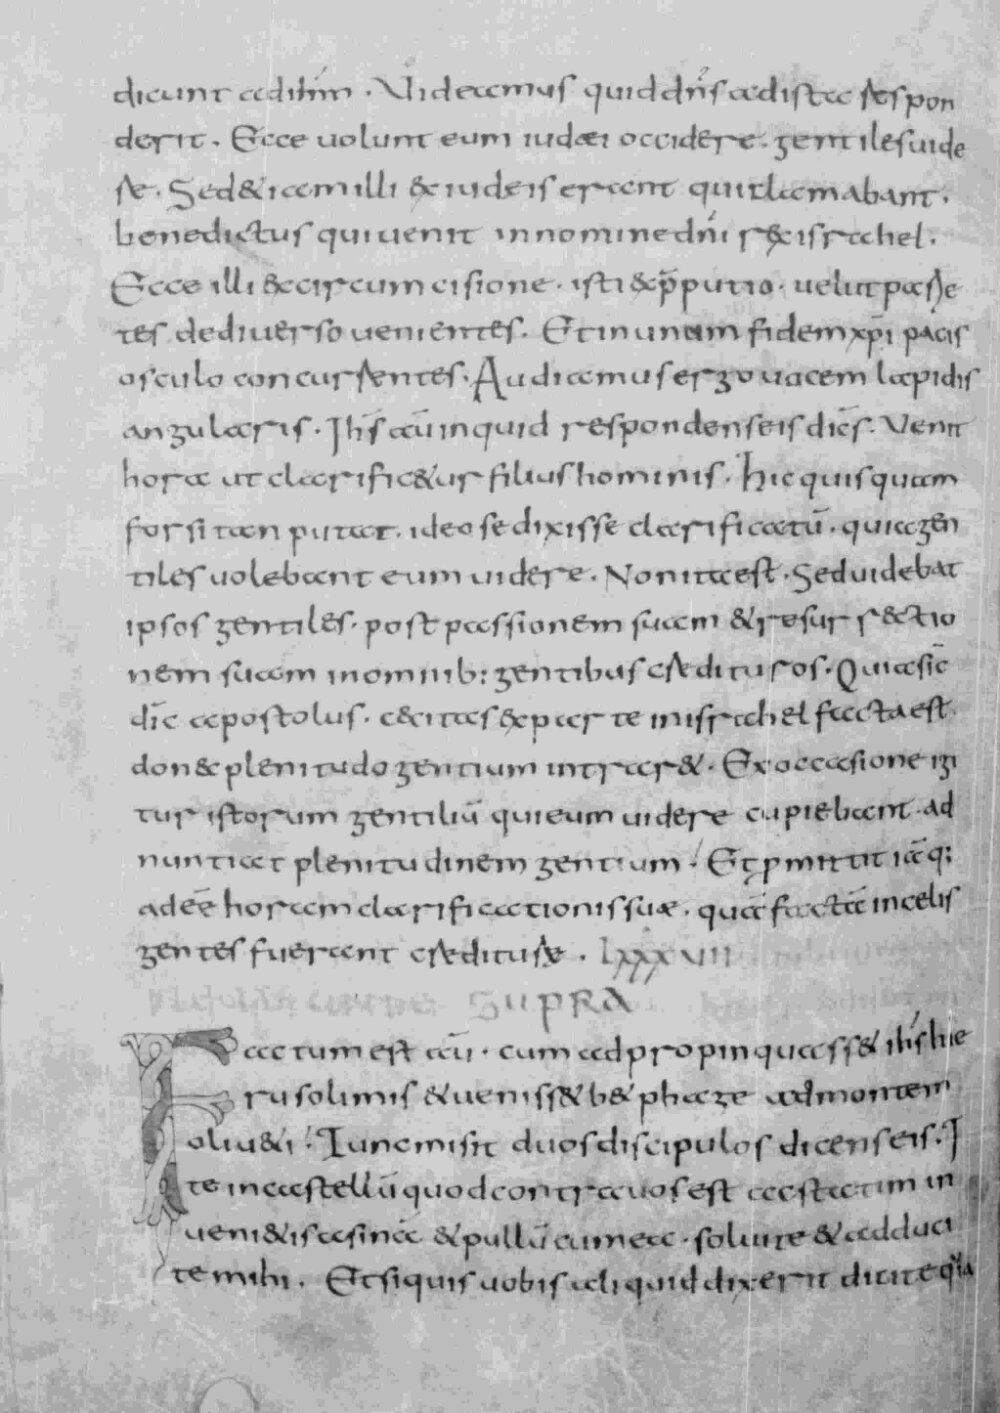 dicunt ad ihm̄. Videamus quid dn̄s ad ista respon
derit. Ecce uolunt eum iudæi occidere. gentiles uide
re. Sed & iam illi & iudeis erant qui clamabant.
benedictus qui uenit in nomine dn̄i rex israhel.
Ecce illi & circumcisione. isti & p̄putio. uelut pariae
tes de diuerso uenientes. Et in unam fidem xp̄i pacis
osculo concurrentes. Audiamus ergo uocem lapidis
angularis. Ihs̄ aū inquid respondens eis dic̄s. Venit
hora ut clarific&ur filius hominis. hic quisquam
forsitan putat. ideo se dixisse clarificatū. quia gen̄
tiles uolebant eum uidere. Non ita est. Sed uidebat
ipsos gentiles. post passionem suam & resurrectio
nem suam in omnib: gentibus credituros. Quia sic̄
dic̄ apostolus. cæcitas ex parte in israhel facta est.
donec plenitudo gentium intrar&. Ex occasione igi
tur istorum gentiliū qui eum uidere cupiebant. ad
nuntiat plenitudinem gentium. Et p̱mittit iā q;
adeē horam clarificationis suæ. quā factā in celis
gentes fuerant crediturae. lxxxvii
SUPRA
Factum est aū. cum adpropinquass& ihs̄ hie
rusolimis & ueniss& b&phage ad montem
oliu&i. Tunc misit duos discipulos dicens eis. I
te in castellū quod contra uos est ac statim in
ueni&is asinā & pullū cum ea. soluite & adduci
te mihi. Et si quis uobis aliquid dixerit dicite q̄a